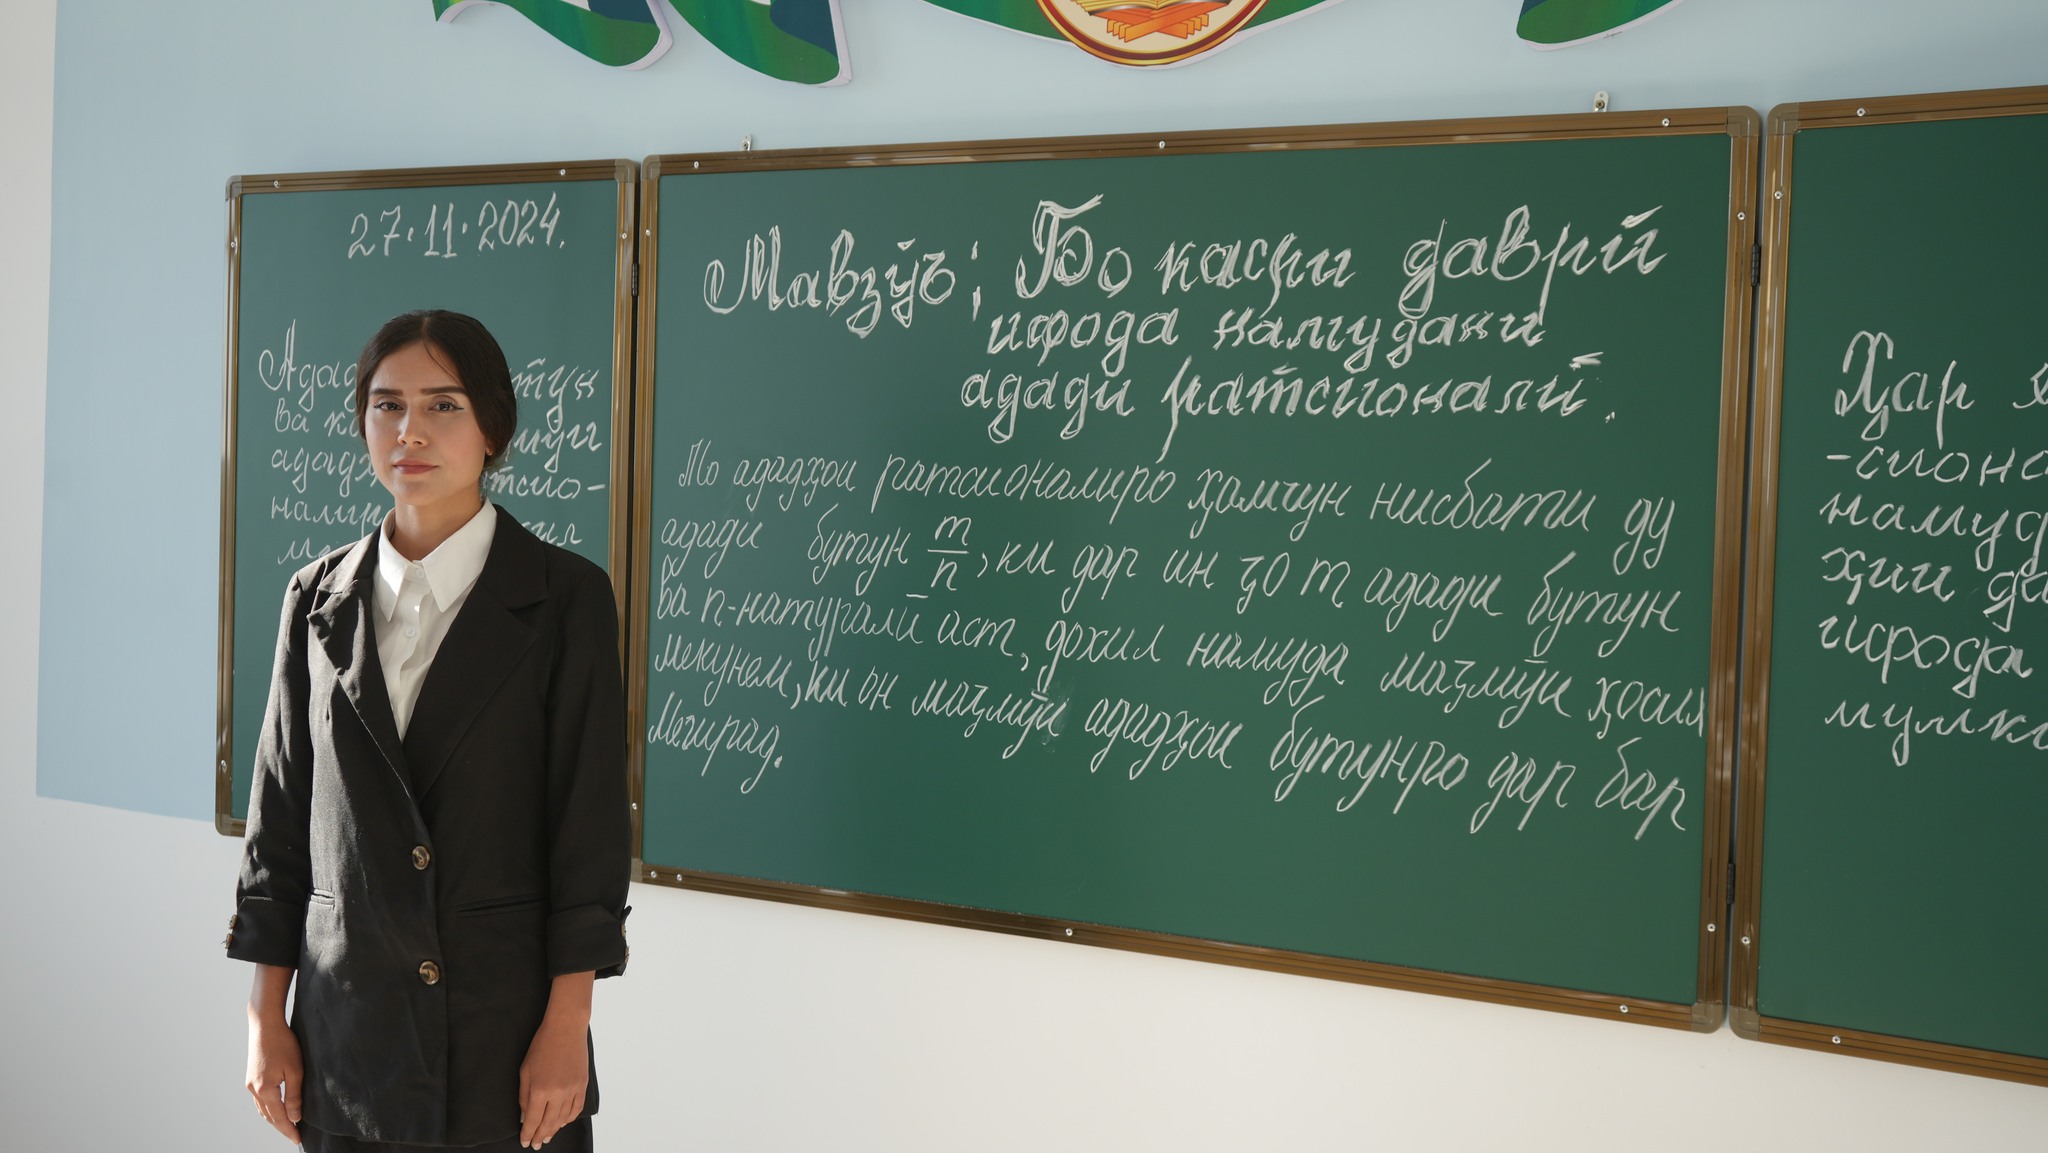 27.11.2024.
ва
Мавзӯъ: Бо касри даврӣ
ифода намудани
адади ратсионалӣ.
Мо ададҳои ратсионалиро ҳамчун нисбати ду
адади бутун m/n, ки дар ин ҷо m адади бутун
ва n-натуралӣ аст, дохил намуда маҷмӯи ҳосил
мекунем, ки он маҷмӯи ададҳои бутунро дар бар
мегирад.
Ҳар
-сиона
намуд
ҳии да
ифода